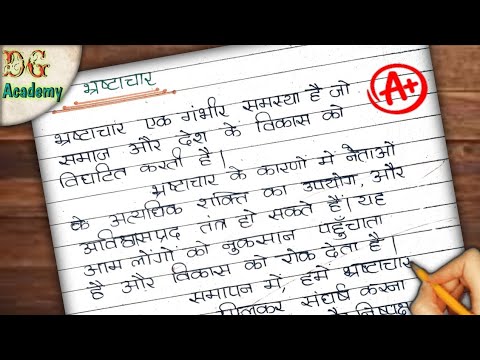 DG
Academy
भ्रष्टाचार
A+
भ्रष्टाचार एक गंभीर समस्या है जो
समाज और देश के विकास को
विघटित करती है।
भ्रष्टाचार के कारणों में नेताओं
के अत्यधिक शक्ति का उपयोग, और
अविश्वासप्रद तंत्र हो सकते हैं। यह
आम लोंगो को नुकसान पहुँचाता
है और विकास को रोक देता है।
समापन में, हमें भ्रष्टाचार
मिलकर संघर्ष करना
निष्पक्ष